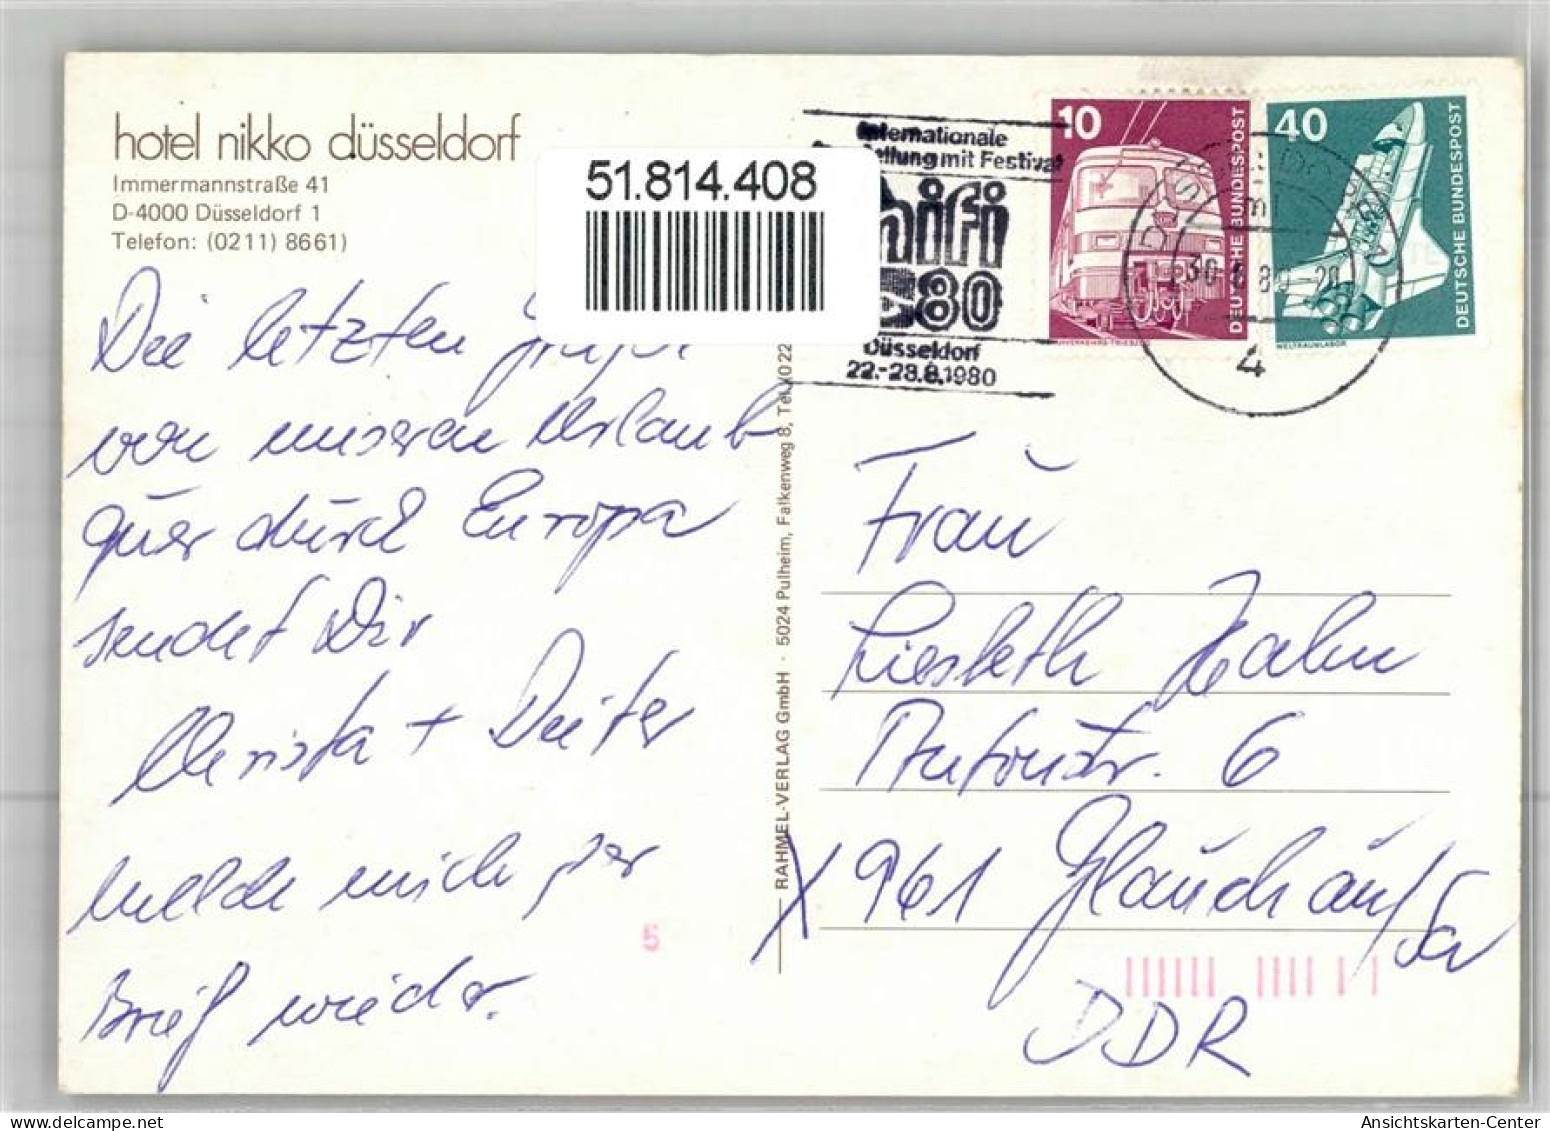 hotel nikko düsseldorf
Immermannstraße 41
D-4000 Düsseldorf 1
Telefon: (0211) 8661)
51.814.408
Internationale
mit Festival
hifi
80
Düsseldorf
22.-28.8.1980
10
DEUTSCHE BUNDESPOST
40
DEUTSCHE BUNDESPOST
WELTRAUMLABOR
4
Die letzten
von unseren Urlaub
quer durch Europa
sendet Dir
Christa + Dieter
melde mich per
Brief wieder.
5
RAHMEL-VERLAG GmbH · 5024 Pulheim, Falkenweg 8, Tel. (022
Frau
Liesbeth Hahn
Antonstr. 6
X 961 Glauchau/Sa
DDR
Ansichtskarten-Center